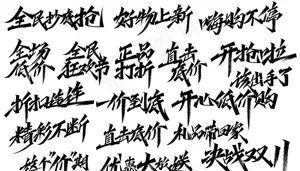 全民抄底抢 好物上新 嗨购不停
全场低价 全民狂欢节 正品打折 直击底价 开抢啦
该出手了
折扣连连 一价到底 开心低价购
精彩不断 直击底价 礼品带回家
整个“价”期 优惠大放送 决战双11